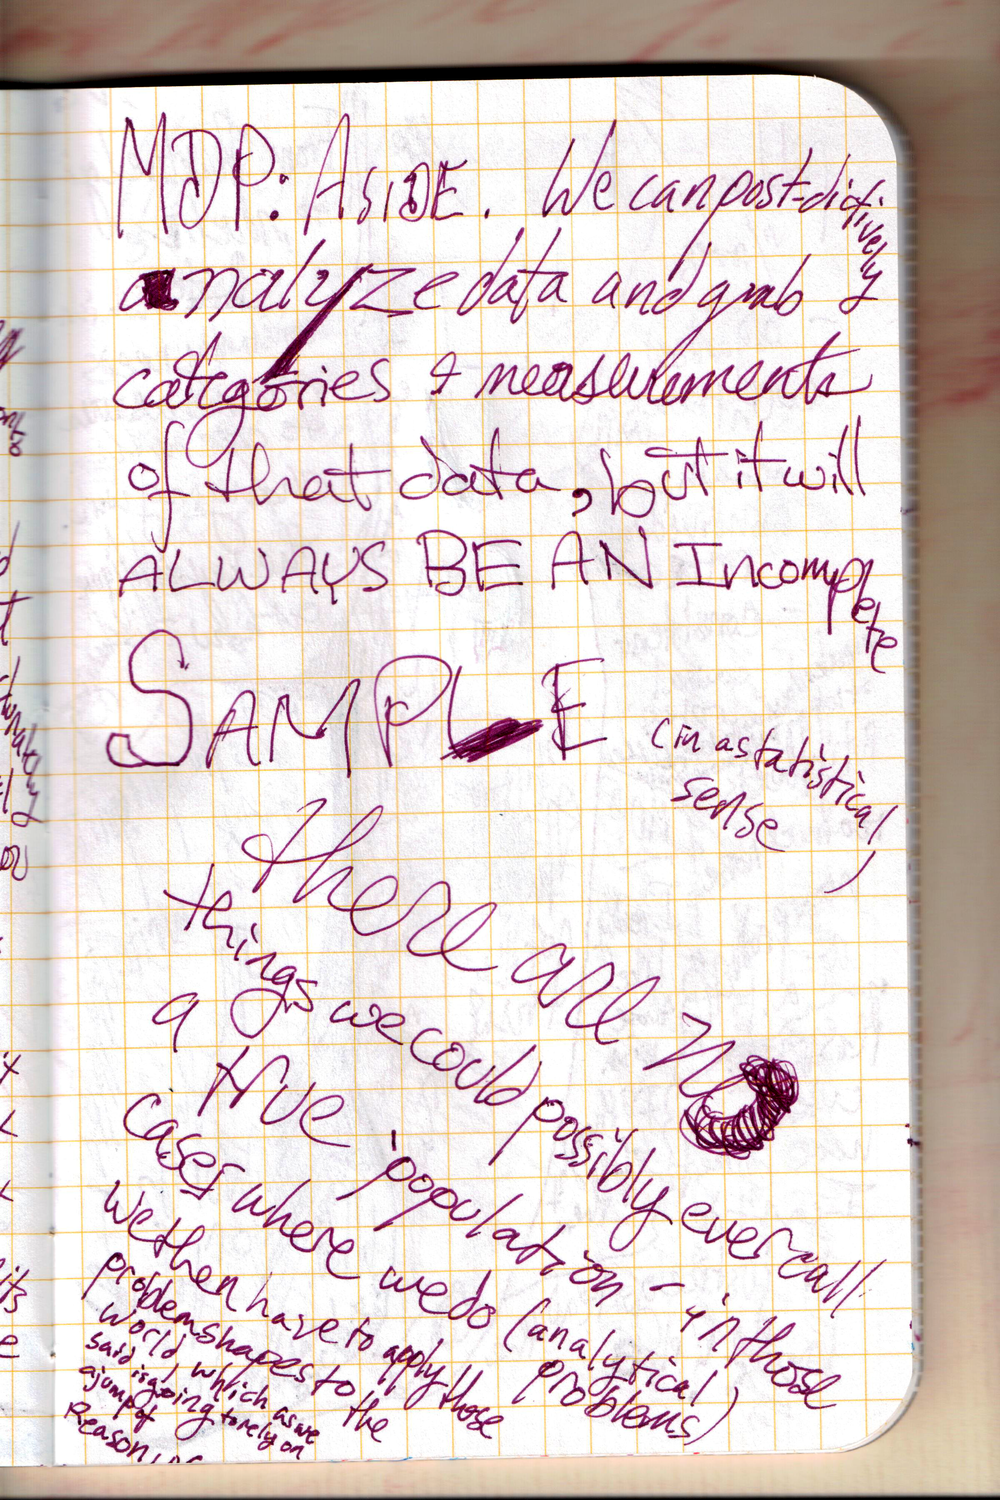 MDP: ASIDE. We can post-dictively
analyze data and grab
categories & measurements
of that data, but it will
ALWAYS BE AN Incomplete
SAMPLE (in a statistical
sense)
there are no
things we could possibly ever call
a true population - in those
cases where we do (analytical
problems)
we then have to apply those
problem shapes to the
world, which as we
said is going to rely on
a jump of
Reason,